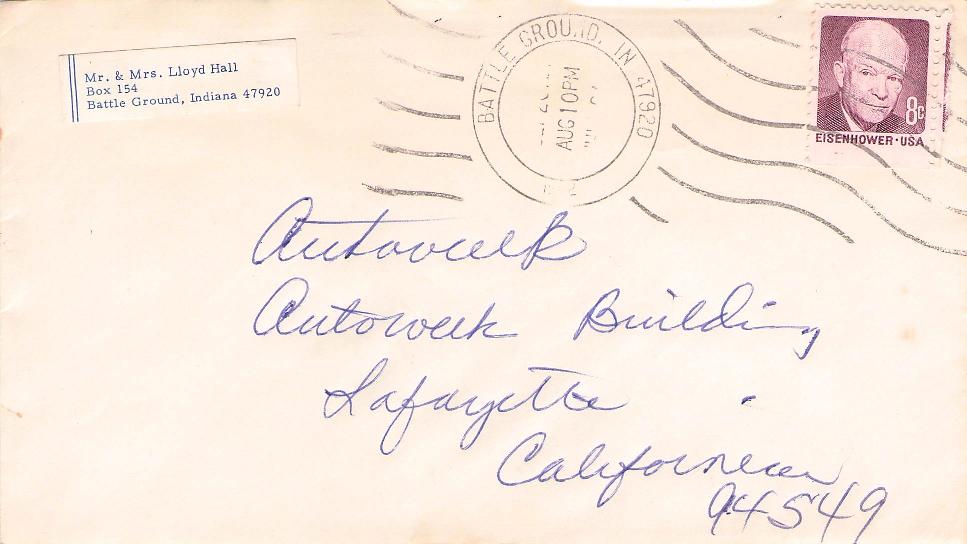 Mr. & Mrs. Lloyd Hall
Box 154
Battle Ground, Indiana 47920
BATTLE GROUND, IN 47920
AUG 10PM
8c
EISENHOWER · USA
Autoweek
Autoweek Building
Lafayette
California
94549